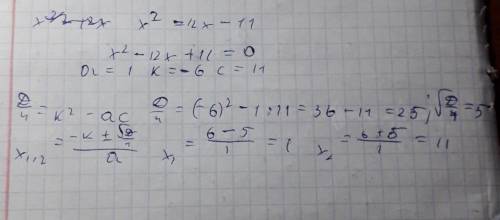 x² = 12x - 11
x² - 12x + 11 = 0
a = 1 k = -6 c = 11
D/4 = k² - ac D/4 = (-6)² - 1·11 = 36 - 11 = 25; √D/4 = 5
x₁,₂ = (-k ± √D/4)/a x₁ = (6 - 5)/1 = 1 x₂ = (6 + 5)/1 = 11